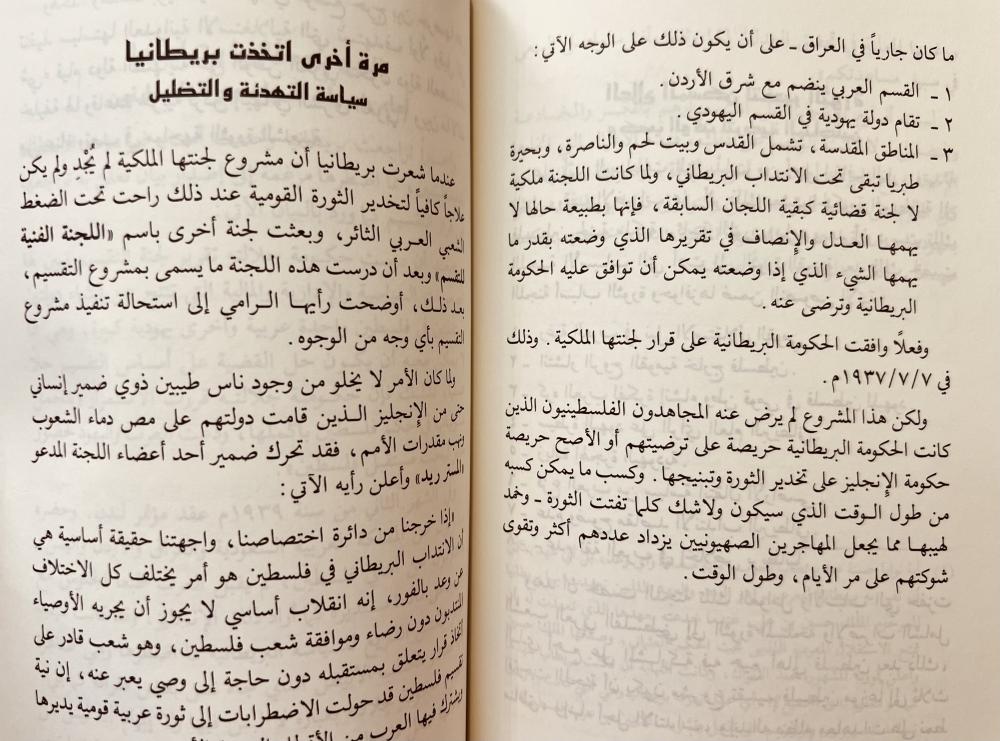 ما كان جارياً في العراق ـ على أن يكون ذلك على الوجه الآتي :
١ ـ القسم العربي ينضم مع شرق الأردن .
٢ ـ تقام دولة يهودية في القسم اليهودي .
٣ ـ المناطق المقدسة، تشمل القدس وبيت لحم والناصرة، وبحيرة
طبريا تبقى تحت الانتداب البريطاني، ولما كانت اللجنة ملكية
لا لجنة قضائية كبقية اللجان السابقة، فإنها بطبيعة حالها لا
يهمها العدل والإنصاف في تقريرها الذي وضعته بقدر ما
يهمها الشيء الذي إذا وضعته يمكن أن توافق عليه الحكومة
البريطانية وترضى عنه .
وفعلاً وافقت الحكومة البريطانية على قرار لجنتها الملكية . وذلك
في ١٩٣٧/٧/٧م .
ولكن هذا المشروع لم يرض عنه المجاهدون الفلسطينيون الذين
كانت الحكومة البريطانية حريصة على ترضيتهم أو الأصح حريصة
حكومة الإنجليز على تخدير الثورة وتبنيجها . وكسب ما يمكن كسبه
من طول الوقت الذي سيكون ولاشك كلما تفتت الثورة ـ وخمد
لهيبها مما يجعل المهاجرين الصهيونيين يزداد عددهم أكثر وتقوى
شوكتهم على مر الأيام، وطول الوقت .
مرة أخرى اتخذت بريطانيا
سياسة التهدئة والتضليل
عندما شعرت بريطانيا أن مشروع لجنتها الملكية لم يُجْدِ ولم يكن
علاجاً كافياً لتخدير الثورة القومية عند ذلك راحت تحت الضغط
الشعبي العربي الثائر، وبعثت لجنة أخرى باسم «اللجنة الفنية
للتقسيم» وبعد أن درست هذه اللجنة ما يسمى بمشروع التقسيم،
بعد ذلك، أوضحت رأيها الرامي إلى استحالة تنفيذ مشروع
التقسيم بأي وجه من الوجوه .
ولما كان الأمر لا يخلو من وجود ناس طيبين ذوي ضمير إنساني
حتى من الإنجليز الذين قامت دولتهم على مص دماء الشعوب
ونهب مقدرات الأمم، فقد تحرك ضمير أحد أعضاء اللجنة المدعو
«المستر ريد» وأعلن رأيه الآتي :
«إذا خرجنا من دائرة اختصاصنا، واجهتنا حقيقة أساسية هي
أن الانتداب البريطاني في فلسطين هو أمر يختلف كل الاختلاف
عن وعد بالفور، إنه انقلاب أساسي لا يجوز أن يجريه الأوصياء
المنتدبون دون رضاء وموافقة شعب فلسطين، وهو شعب قادر على
اتخاذ قرار يتعلق بمستقبله دون حاجة إلى وصي يعبر عنه، إن نية
تقسيم فلسطين قد حولت الاضطرابات إلى ثورة عربية قومية يديرها
ويشترك فيها العرب من